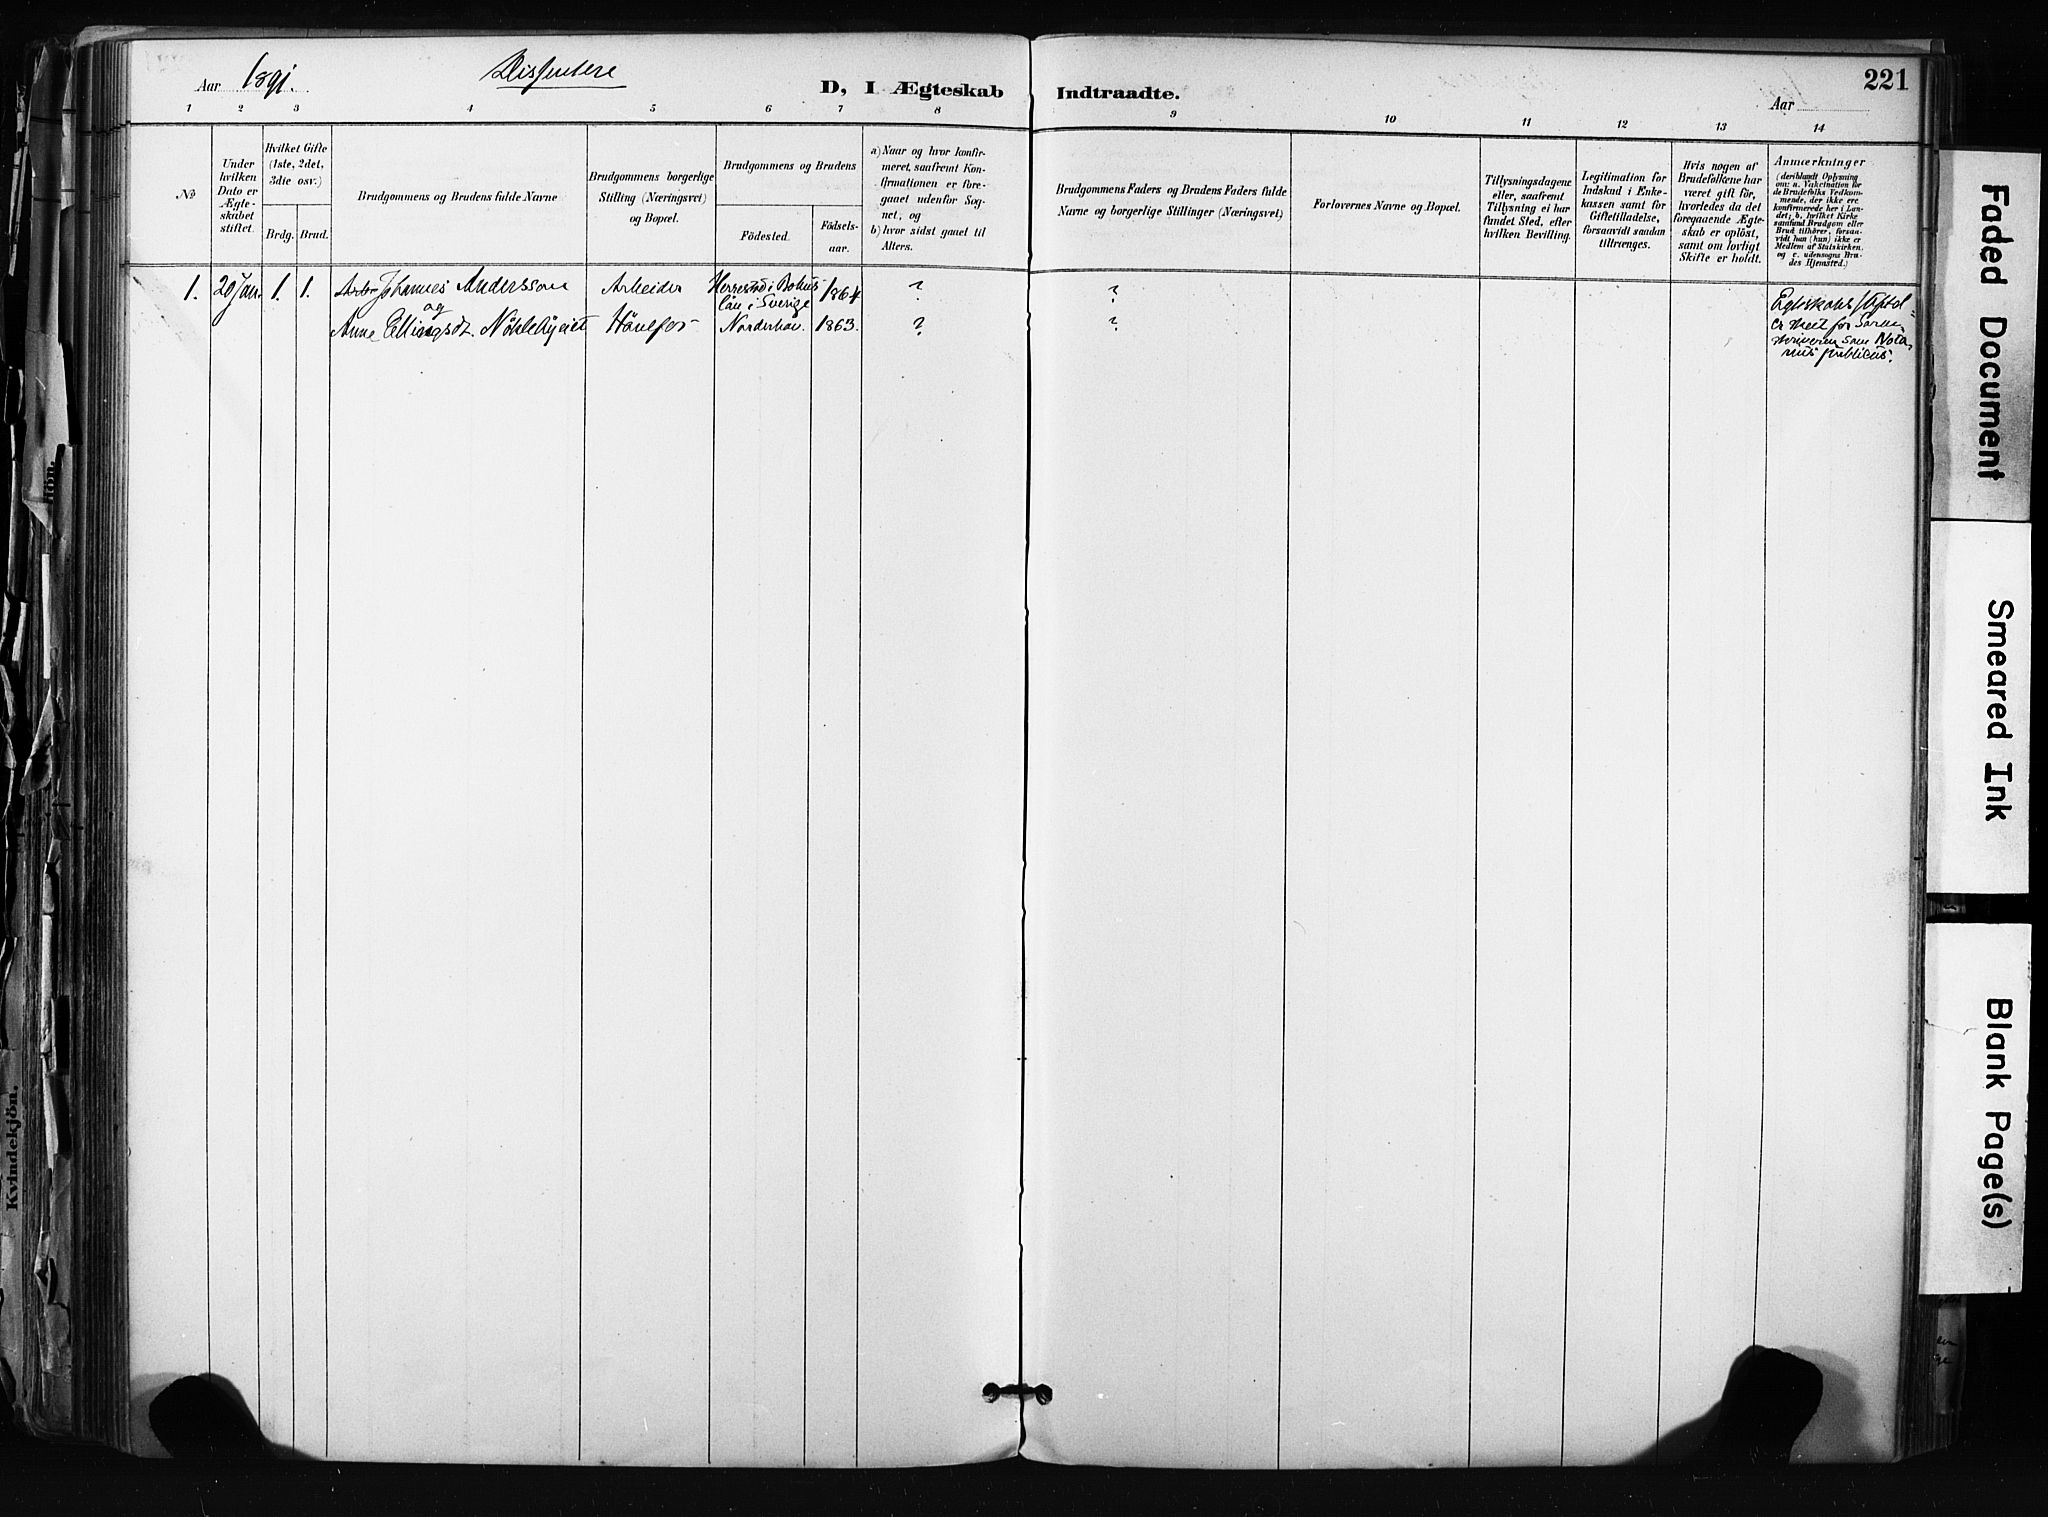 Aar 1891. Dissentere D, I Ægteskab Indtraadte. Aar 221
1 2 3 4 5 6 7 8 9 10 11 12 13 14
No
Under hvilken Dato er Ægteskabet stiftet.
Hvilket Gifte (1ste, 2det, 3die osv.)
Brdg. Brud.
Brudgommens og Brudens fulde Navne
Brudgommens borgerlige Stilling (Næringsvei) og Bopæl.
Brudgommens og Brudens
Födested. Födsels-aar.
a) Naar og hvor konfir-
meret, saafremt Kon-
firmationen er fore-
gaaet udenfor Sog-
net, og
b) hvor sidst gaaet til
Alters.
Brudgommens Faders og Brudens Faders fulde
Navne og borgerlige Stillinger (Næringsvei)
Forlovernes Navne og Bopæl.
Tillysningsdagene
eller, saafremt
Tillysning ei har
fundet Sted, efter
hvilken Bevilling.
Legitimation for
Indskud i Enke-
kassen samt for
Giftetilladelse,
forsaavidt saadan
tiltrænges.
Hvis nogen af
Brudefolkene har
været gift för,
hvorledes da det
foregaaende Ægte-
skab er oplöst,
samt om lovligt
Skifte er holdt.
Anmærkninger
(deriblandt Oplysning
om: a. Vakcination for
de Brudefolks Vedkom-
mende, der ikke ere
konfirmerede her i Lan-
det; b. hvilket Kirke
samfund Brudgom eller
Brud tilhörer, forsaa-
vidt han (hun) ikke er
Medlem af Statskirken,
og c. udensogns Bru-
des Hjemsted.)
1. 20 Jan. 1. 1. Johannes Andersson Arbeider Herrestad i Bohus 1864 ? ?
og
län i Sverige
Anne Ellingsdt. Hönefos Norderhov. 1863. ? ?
Egteskabs
er skeet for Soren-
skriveren som Nota-
rius publicus.
Faded Document
Smeared Ink
Blank Page(s)
Kvindekjön.